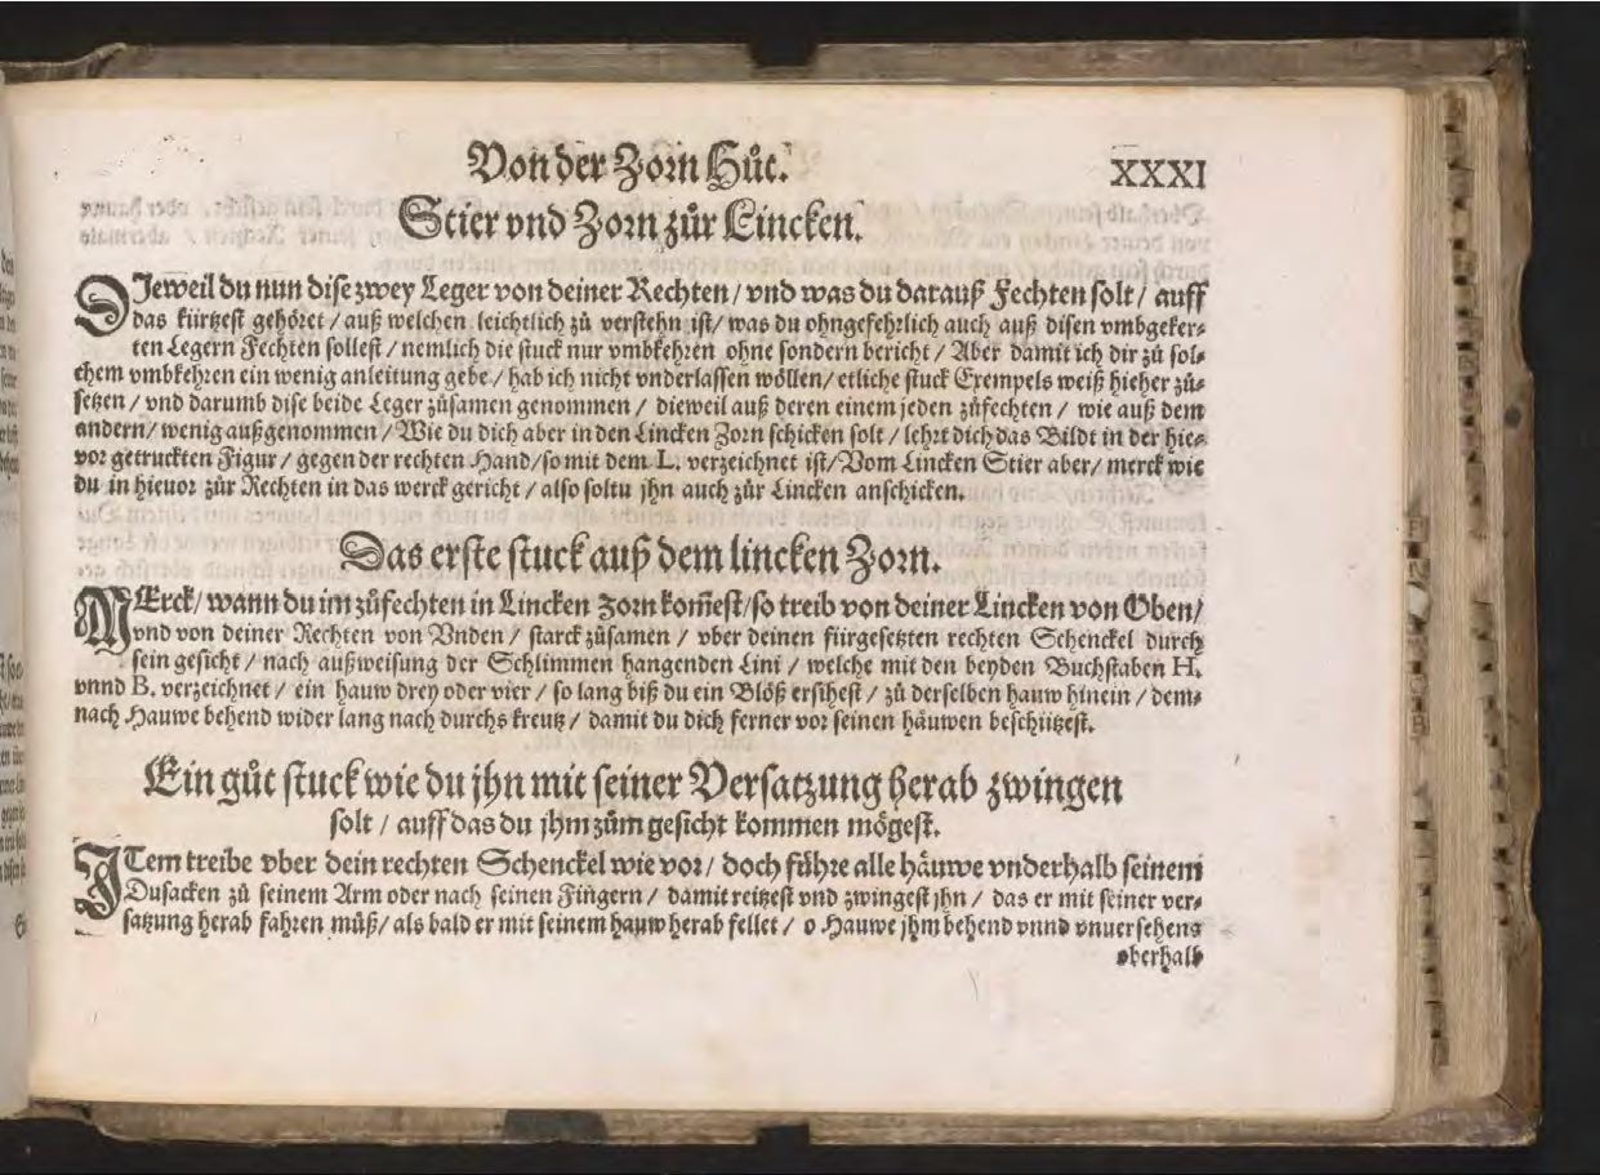 Von der Zorn Hůt.
XXXI
Stier vnd Zorn zůr Lincken.
DJeweil du nun dise zwey Leger von deiner Rechten / vnd was du darauß Fechten solt / auff
das kürtzest gehöret / auß welchen leichtlich zů verstehn ist / was du ohngefehrlich auch auß disen vmbgeker⸗
ten Legern Fechten sollest / nemlich die stuck nur vmbkehren ohne sondern bericht / Aber damit ich dir zů sol⸗
chem vmbkehren ein wenig anleitung gebe / hab ich nicht vnderlassen wöllen / etliche stuck Exempels weiß hieher zů⸗
setzen / vnd darumb dise beide Leger zůsamen genommen / dieweil auß deren einem jeden zůfechten / wie auß dem
andern / wenig außgenommen / Wie du dich aber in den Lincken Zorn schicken solt / lehrt dich das Bildt in der hie⸗
vor getruckten Figur / gegen der rechten Hand / so mit dem L. verzeichnet ist / Vom Lincken Stier aber / merck wie
du in hieuor zůr Rechten in das werck gericht / also soltu jhn auch zůr Lincken anschicken.
Das erste stuck auß dem lincken Zorn.
MErck / wann du im zůfechten in Lincken Zorn kom̃est / so treib von deiner Lincken von Oben /
vnd von deiner Rechten von Vnden / starck zůsamen / vber deinen fürgesetzten rechten Schenckel durch
sein gesicht / nach außweisung der Schlimmen hangenden Lini / welche mit den beyden Buchstaben H.
vnnd B. verzeichnet / ein hauw drey oder vier / so lang biß du ein Blöß ersihest / zů derselben hauw hinein / dem⸗
nach Hauwe behend wider lang nach durchs kreutz / damit du dich ferner vor seinen häuwen beschützest.
Ein gůt stuck wie du jhn mit seiner Versatzung herab zwingen
solt / auff das du jhm zům gesicht kommen mögest.
JTem treibe vber dein rechten Schenckel wie vor / doch führe alle häuwe vnderhalb seinem
Dusacken zů seinem Arm oder nach seinen Fingern / damit reitzest vnd zwingest jhn / das er mit seiner ver⸗
satzung herab fahren můß / als bald er mit seinem hauw herab fellet / o Hauwe jhm behend vnnd vnuersehens
oberhalb